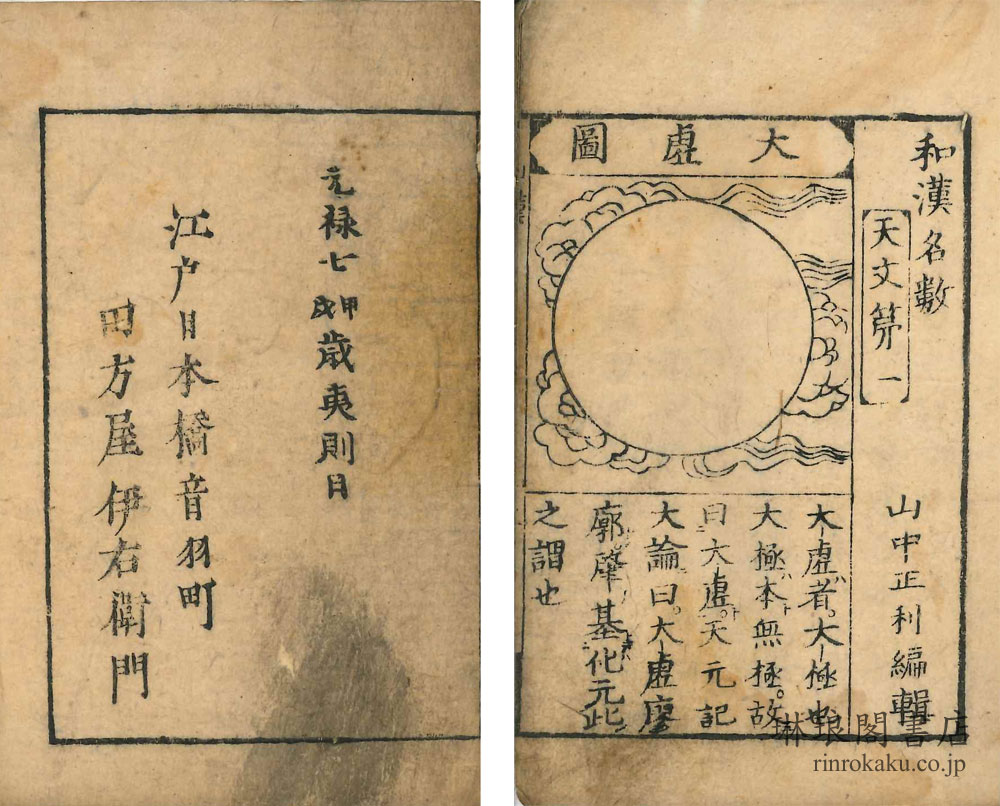 和漢名數
天文第一
山中正利編輯
大虛圖
大虛者大極也
大極本無極故
曰大虛天元記
大論曰大虛廖
廓肇基化元此
之謂也
元禄七甲戌歳夷則日
江戸日本橋音羽町
田方屋伊右衛門
琳琅閣書店
rinrokaku.co.jp